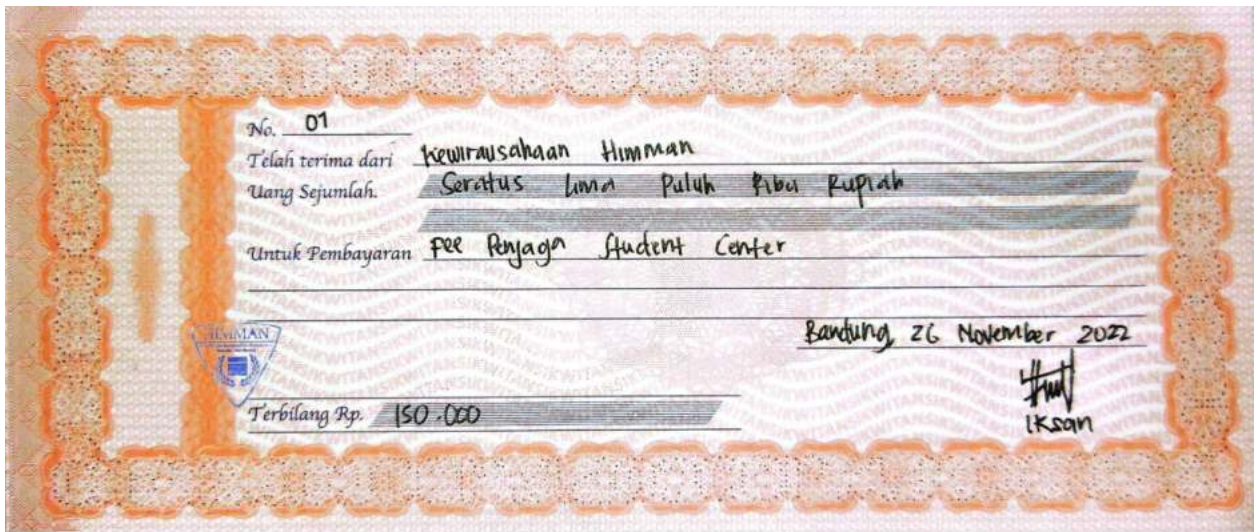 No. 01
Telah terima dari Kewirausahaan Himman
Uang Sejumlah. Seratus Lima Puluh Ribu Rupiah
Untuk Pembayaran Fee Penjaga Student Center
HIMMAN
Bandung, 26 November 2022
Terbilang Rp. 150.000
Iksan